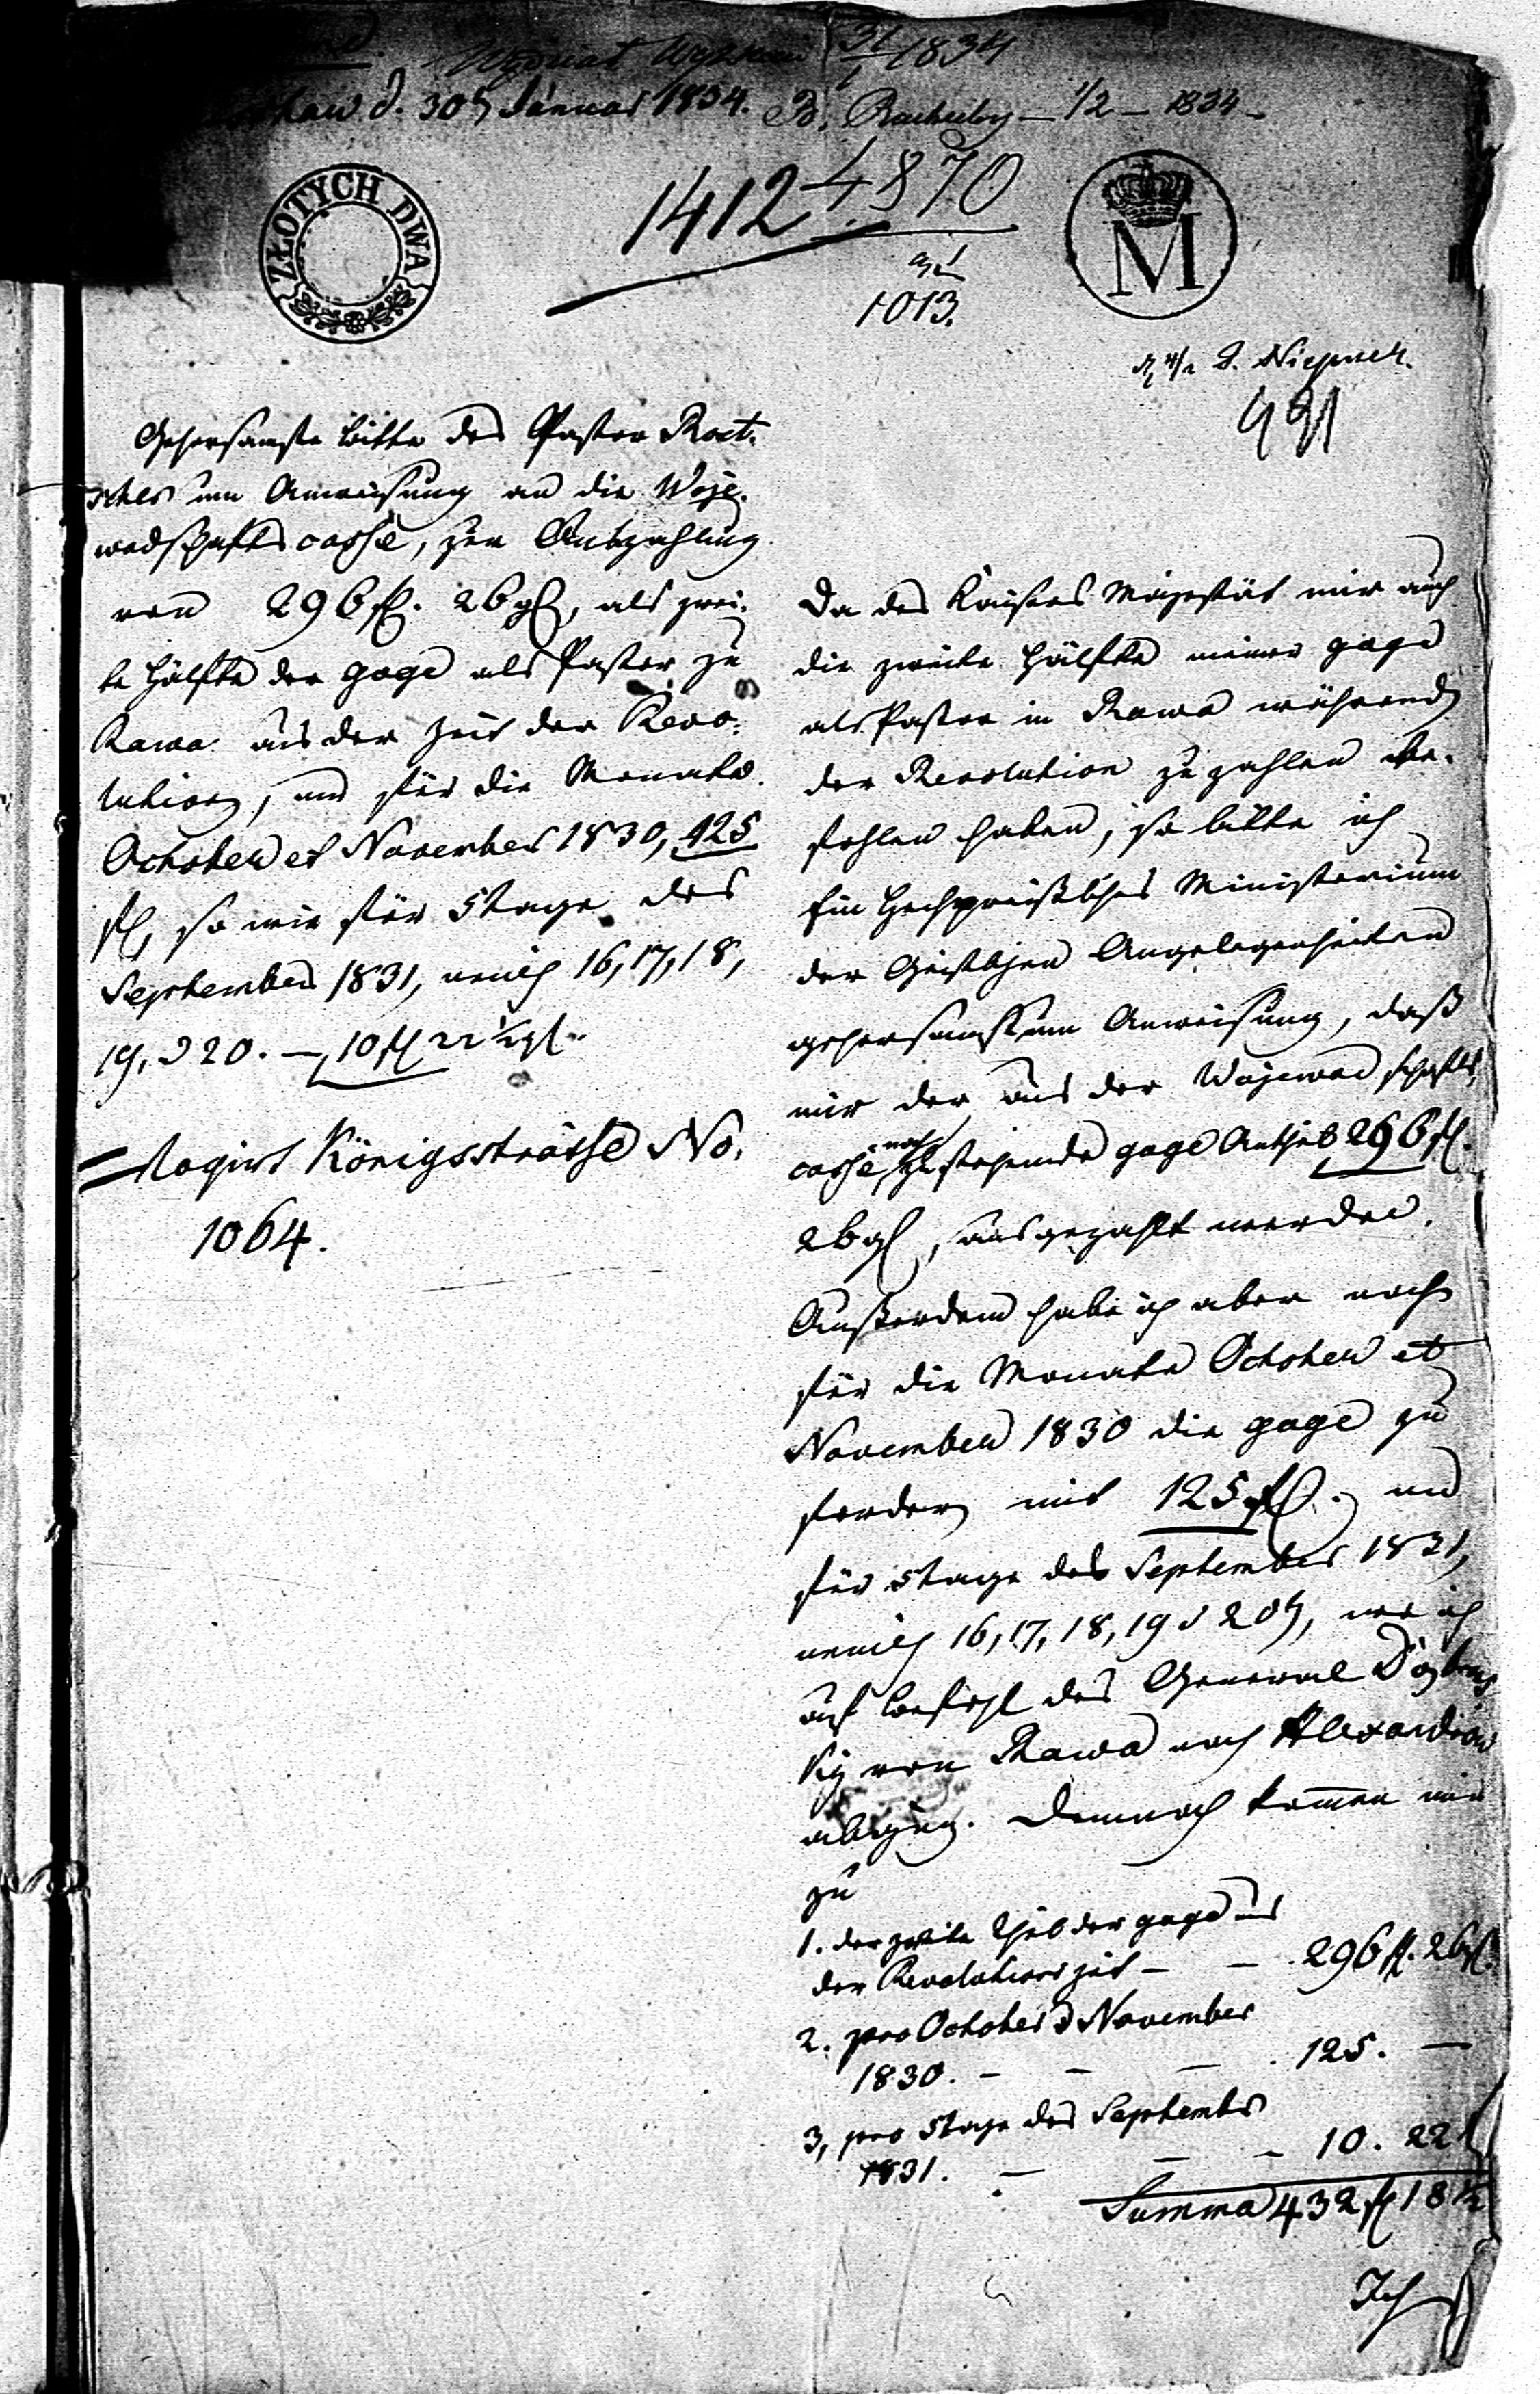 d. 30t Januar 1834.
31/1 1834
1/2 - 1834
ZŁOTYCH DWA
1412
4870
1013.
M
991
Gehorsamste Bitte des Pastor Roet-
scher um Anweisung an die Woje-
wodschafts casse, zur Auszahlung
von 296 fl. 26 gl, als zwei-
te Hälfte der gage als Pastor zu
Rawa aus der Zeit der Revo-
lution, und für die Monate
October et November 1830, 125
fl, so wie für 5 Tage des
September 1831, nemlich 16, 17, 18,
19, & 20. — 10 fl 22 1/2 gl.
logirt Königsstrasse No.
1064.
Da des Kaisers Majestät mir auch
die zweite Hälfte meiner gage
als Pastor in Rawa während
der Revolution zu zahlen be-
fohlen haben, so bitte ich
Ein Hochpreißliches Ministerium
der Geistlichen Angelegenheiten
gehorsamst um Anweisung, daß
mir der, aus der Wojewodschafts
casse, noch zustehende gage Antheil 296 fl.
26 gl, ausgezahlt werde.
Außerdem habe ich aber noch
für die Monate October et
November 1830 die gage zu
fordern mit 125 fl. und
für 5 Tage des September 1831,
nemlich 16, 17, 18, 19 & 20t, wo ich
auf Befehl des General
von Rawa nach Alexandrow
abging. Demnach kommen mir
zu
1. der zweite Theil der gage aus
der Revolutionszeit — — 296 fl. 26 gl.
2. pro October & November
1830. — — — 125. —
3, pro 5 Tage des September
1831. — — — 10. 22 1/2
Summa 432 fl 18 1/2
Ich